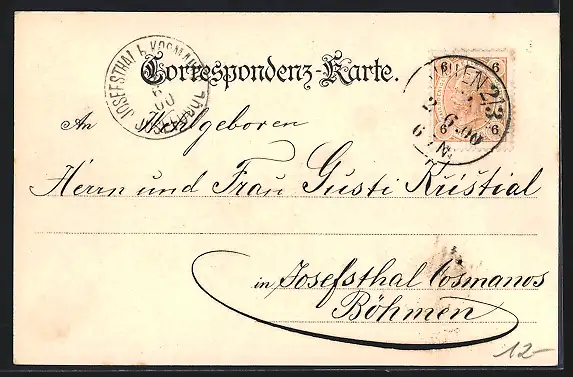 Correspondenz-Karte.
JOSEFSTHAL b. KOSMAN
6
00
6 6
6 6
WIEN 2/3
2. 6. 00
6
An Wohlgeboren
Herrn und Frau Gusti Kristial
in Josefsthal Cosmanos
Böhmen
12-